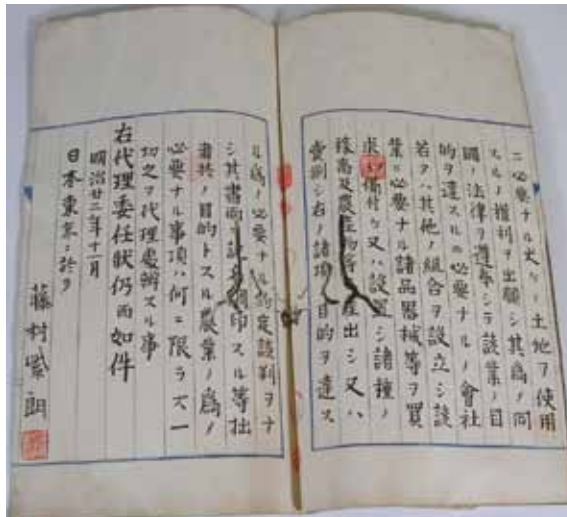 ニ必要ナル丈ケノ土地ヲ使用
スルノ権利ヲ出願シ其為ノ同
國ノ法律ヲ遵奉シテ該業ノ目
的ヲ達スルニ必要ナルノ會社
若クハ其他ノ組合ヲ設立シ該
業ニ必要ナル諸品器械等ヲ買
求メ備付ケ又ハ設置シ諸種ノ
稼高及農産物等 産出シ又ハ
賣捌シ右ノ諸項 目的ヲ達ス
ル為ノ必要ナル約定談判ヲナ
シ其書面 調印スル等拙
者共ノ目的トスル農業ノ為ノ
必要ナル事項ハ何ニ限ラズ一
切之ヲ代理處辨スル事
右代理委任状仍而如件
明治廿二年十一月
日本東京ニ於テ
藤村紫朗